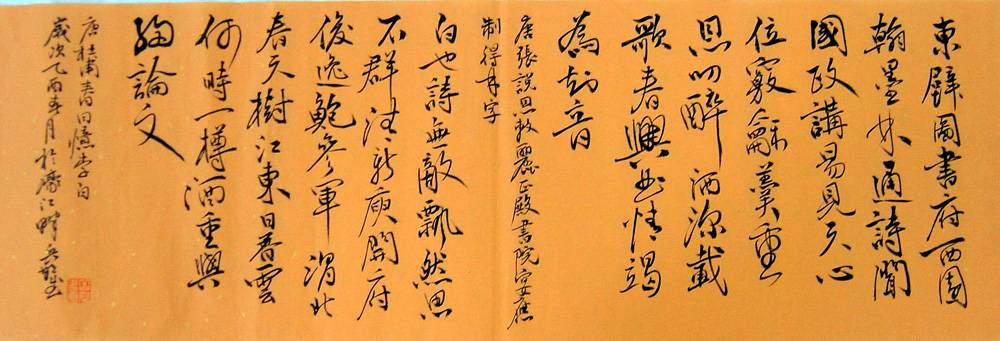 東壁圖書府西園
翰墨林通詩聞
國政講易見天心
位竊龢羹重
恩叨醉酒深載
歌春興曲情竭
為知音
唐張說恩敕麗正殿書院宴應
制得林字
白也詩無敵飄然思
不群清新庾開府
俊逸鮑參軍渭北
春天樹江東日暮雲
何時一樽酒重與
細論文
唐杜甫春日憶李白
歲次乙酉春月於江畔